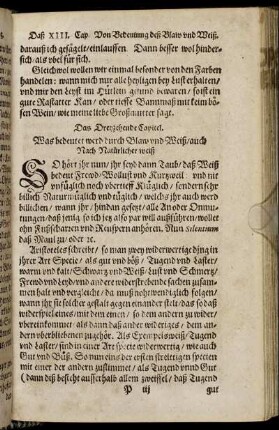 Daß XIII. Cap. Von Bedeutung deß Blaw vnd Weiß.
darauß ich gesägelt / einlauffen. Dann besser wol hinder-
sich / als vbel für sich.
Gleichwol wollen wir einmal besonder von den Farben
handelen: wann mich nur alle heyligen bey Lust erhalten /
vnd mir den Leyst im Dürlein gesund bewaren / sonst ein
gute Rastatter Kan / oder tieffe Wannmaß mit keim bö-
sen Wein / wie meine liebe Großmutter sagt.
Das Dreyzehende Capitel.
Was bedeutet werd durch Blaw vnd Weiß / auch
Nach Natürlicher weiß
SO hört jhr nun / jhr seyd dann Taub / daß Weiß
bedeut Frewd Wollust vnd Kurtzweil vnd nit
vnfüglich noch vbertieff Klüglich / sondern sehr
billich Natürmüglich vnd füglich / welchs jhr auch werd
billichen / wann jhr / hindan gesetzt / alle An oder Onmu-
tungen / daß jenig so ich jetz also par will außführen / wöllet
ohn Hustscharren vnd Reuspern anhören. Nun silentium
daß Maul zu / oder ꝛc.
Aristoteles schreibe / so man zwey widerwertige ding in
jhrer Art Specie / als gut vnd böß / Tugend vnd Laster /
warm vnd kalt / Schwarz vnd Weiß / Lust vnd Schmertz /
Frewd vnd Leyd / vnd andere widerstrebende sachen zusam-
men halt vnd vergleicht / da muß nohtwendiglich folgen /
wann jhr sie solcher gestalt gegen einander stelt / das so daß
widerspiel eines / mit dem einen / so dem andern zu wider /
vbereinkommet / als dann daß ander widerigs / dem an-
dern vberblibenen zugehör. Als Exempelsweiß / Tugend
vnd Laster / sind in einer Art specie widerwertig / wie auch
Gut vnd Böß. So nun eins der ersten streitigen specien
mit einer der andern zustimmet / als Tugend vnnd Gut
(dann diß besicht ausserhalb allem zweiffel / daß Tugend
P iij
gut